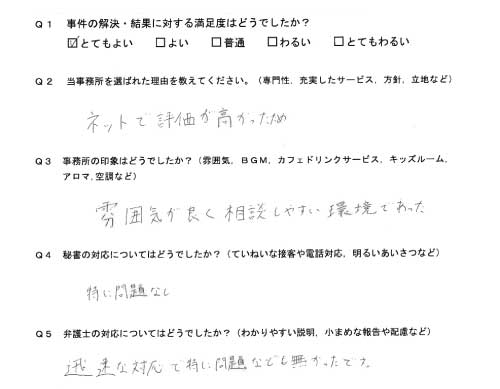 Q1 事件の解決・結果に対する満足度はどうでしたか？
☑とてもよい □よい □普通 □わるい □とてもわるい
Q2 当事務所を選ばれた理由を教えてください。（専門性，充実したサービス，方針，立地など）
ネットで評価が高かったため
Q3 事務所の印象はどうでしたか？（雰囲気，BGM，カフェドリンクサービス，キッズルーム，
アロマ,空調など）
雰囲気が良く相談しやすい環境であった
Q4 秘書の対応についてはどうでしたか？（ていねいな接客や電話対応，明るいあいさつなど）
特に問題なし
Q5 弁護士の対応についてはどうでしたか？（わかりやすい説明，小まめな報告や配慮など）
迅速な対応で特に問題なども無かったです。